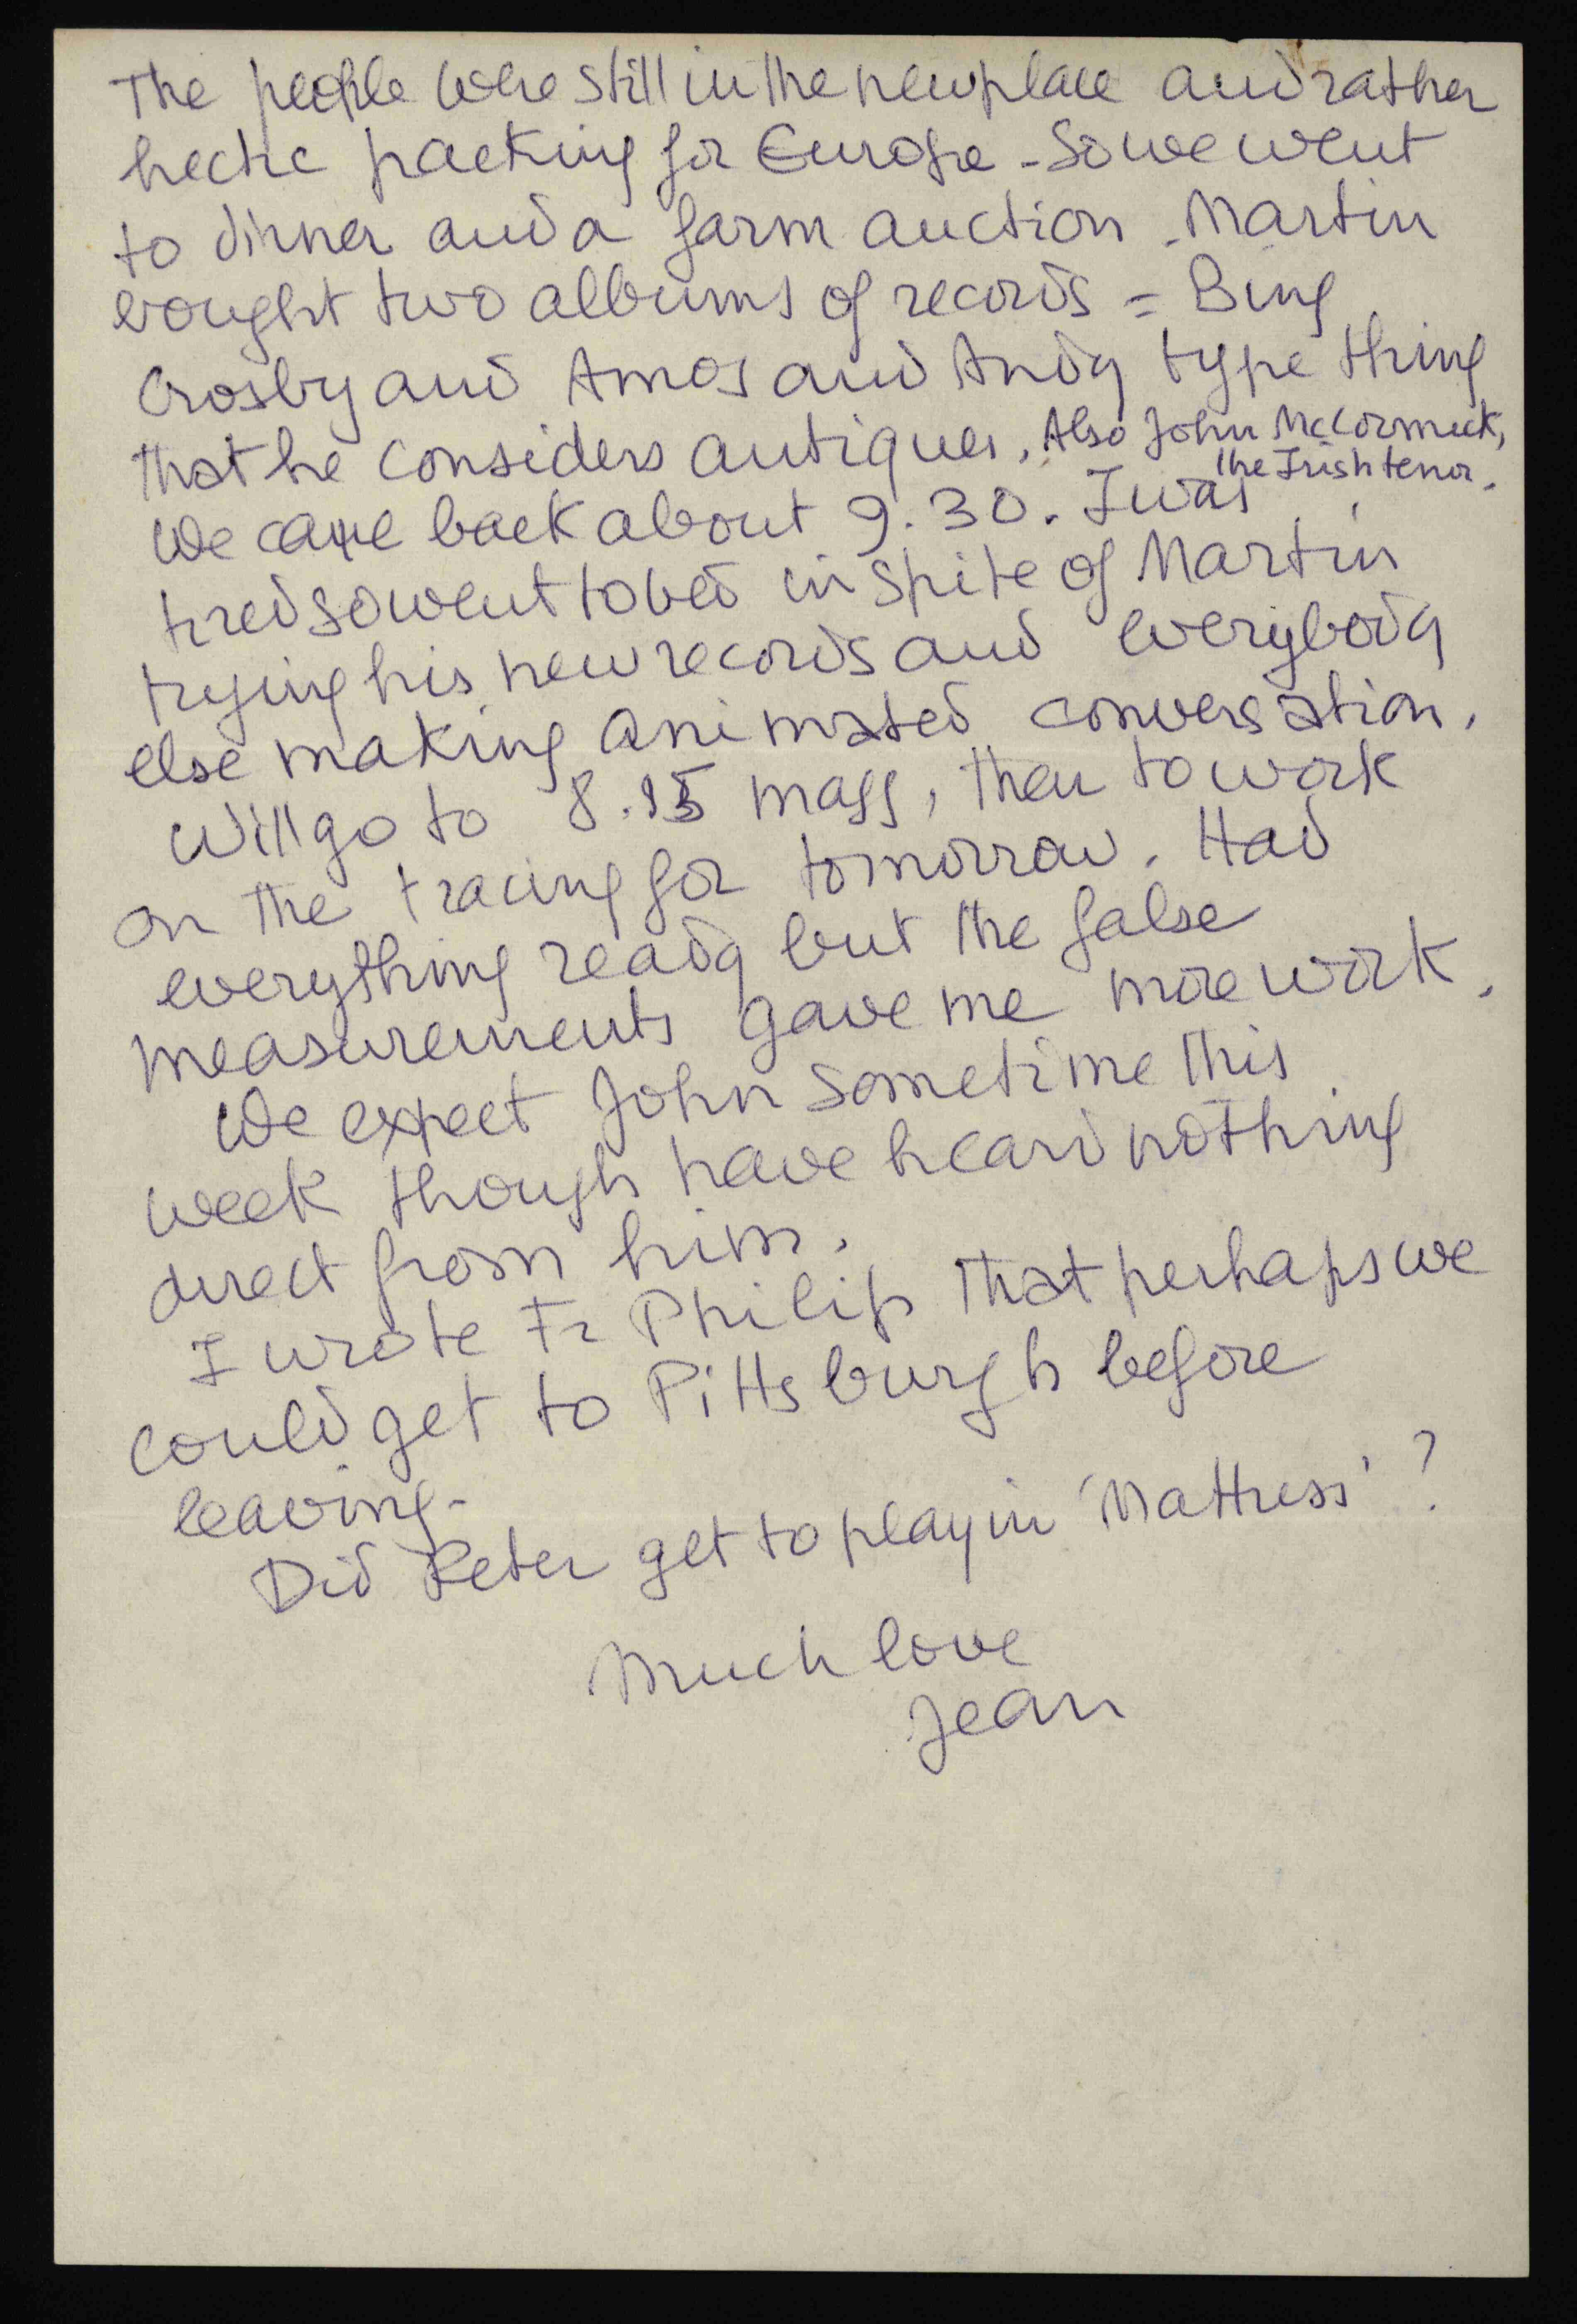 The people were still in the new place and rather
hectic packing for Europe - So we went
to dinner and a farm auction. Martin
bought two albums of records = Bing
Crosby and Amos and Andy type thing
that he considers antiques. Also John McCormick,
the Irish tenor.
We came back about 9.30. I was
tired so went to bed in spite of Martin
trying his new records and everybody
else making animated conversation.
Will go to 8.15 mass, then to work
on the tracing for tomorrow. Had
everything ready but the false
measurements gave me more work.
We expect John sometime this
week though have heard nothing
direct from him.
I wrote Fr Philip that perhaps we
could get to Pittsburgh before
leaving.
Did Peter get to play in 'Mattress'?
Much love
Jean